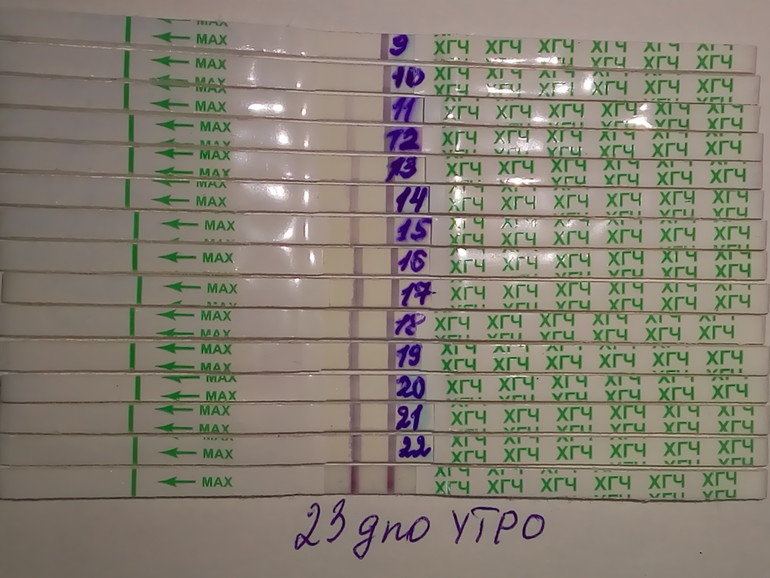 MAX
MAX 9 ХГЧ ХГЧ ХГЧ ХГЧ ХГЧ ХГЧ
MAX ХГЧ ХГЧ ХГЧ ХГЧ ХГЧ ХГЧ
MAX 10 ХГЧ ХГЧ ХГЧ ХГЧ ХГЧ ХГЧ
MAX 11 ХГЧ ХГЧ ХГЧ ХГЧ ХГЧ ХГЧ
MAX 12 ХГЧ ХГЧ ХГЧ ХГЧ ХГЧ ХГЧ
MAX 13 ХГЧ ХГЧ ХГЧ ХГЧ ХГЧ ХГЧ
MAX 14 ХГЧ ХГЧ ХГЧ ХГЧ ХГЧ ХГЧ
MAX 15 ХГЧ ХГЧ ХГЧ ХГЧ ХГЧ ХГЧ
MAX 16 ХГЧ ХГЧ ХГЧ ХГЧ ХГЧ ХГЧ
MAX 17 ХГЧ ХГЧ ХГЧ ХГЧ ХГЧ ХГЧ
MAX 18 ХГЧ ХГЧ ХГЧ ХГЧ ХГЧ ХГЧ
MAX
MAX 19 ХГЧ ХГЧ ХГЧ ХГЧ ХГЧ ХГЧ
MAX 20 ХГЧ ХГЧ ХГЧ ХГЧ ХГЧ ХГЧ
MAX 21 ХГЧ ХГЧ ХГЧ ХГЧ ХГЧ ХГЧ
MAX 22 ХГЧ ХГЧ ХГЧ ХГЧ ХГЧ ХГЧ
MAX ХГЧ ХГЧ ХГЧ ХГЧ ХГЧ ХГЧ
23 дпо УТРО